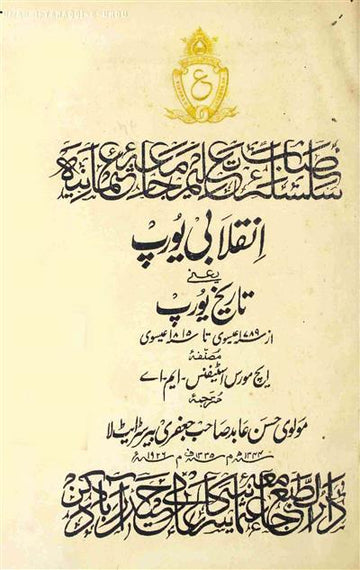 ع
سلسلۂ نصاب تعلیم جامعۂ عثمانیہ
انقلابی یورپ
یعنی
تاریخ یورپ
از ۱۷۸۹ عیسوی تا ۱۸۱۵ عیسوی
مصنفۂ
ایچ مورس اسٹیفنس - ایم - اے
مترجمۂ
مولوی حسن عابد صاحب جعفری بیرسٹر ایٹ لا
۱۳۴۴ھ م ۱۳۳۵ف م ۱۹۲۶ء
دار الطبع جامعہ عثمانیہ سرکار عالی حیدرآباد دکن